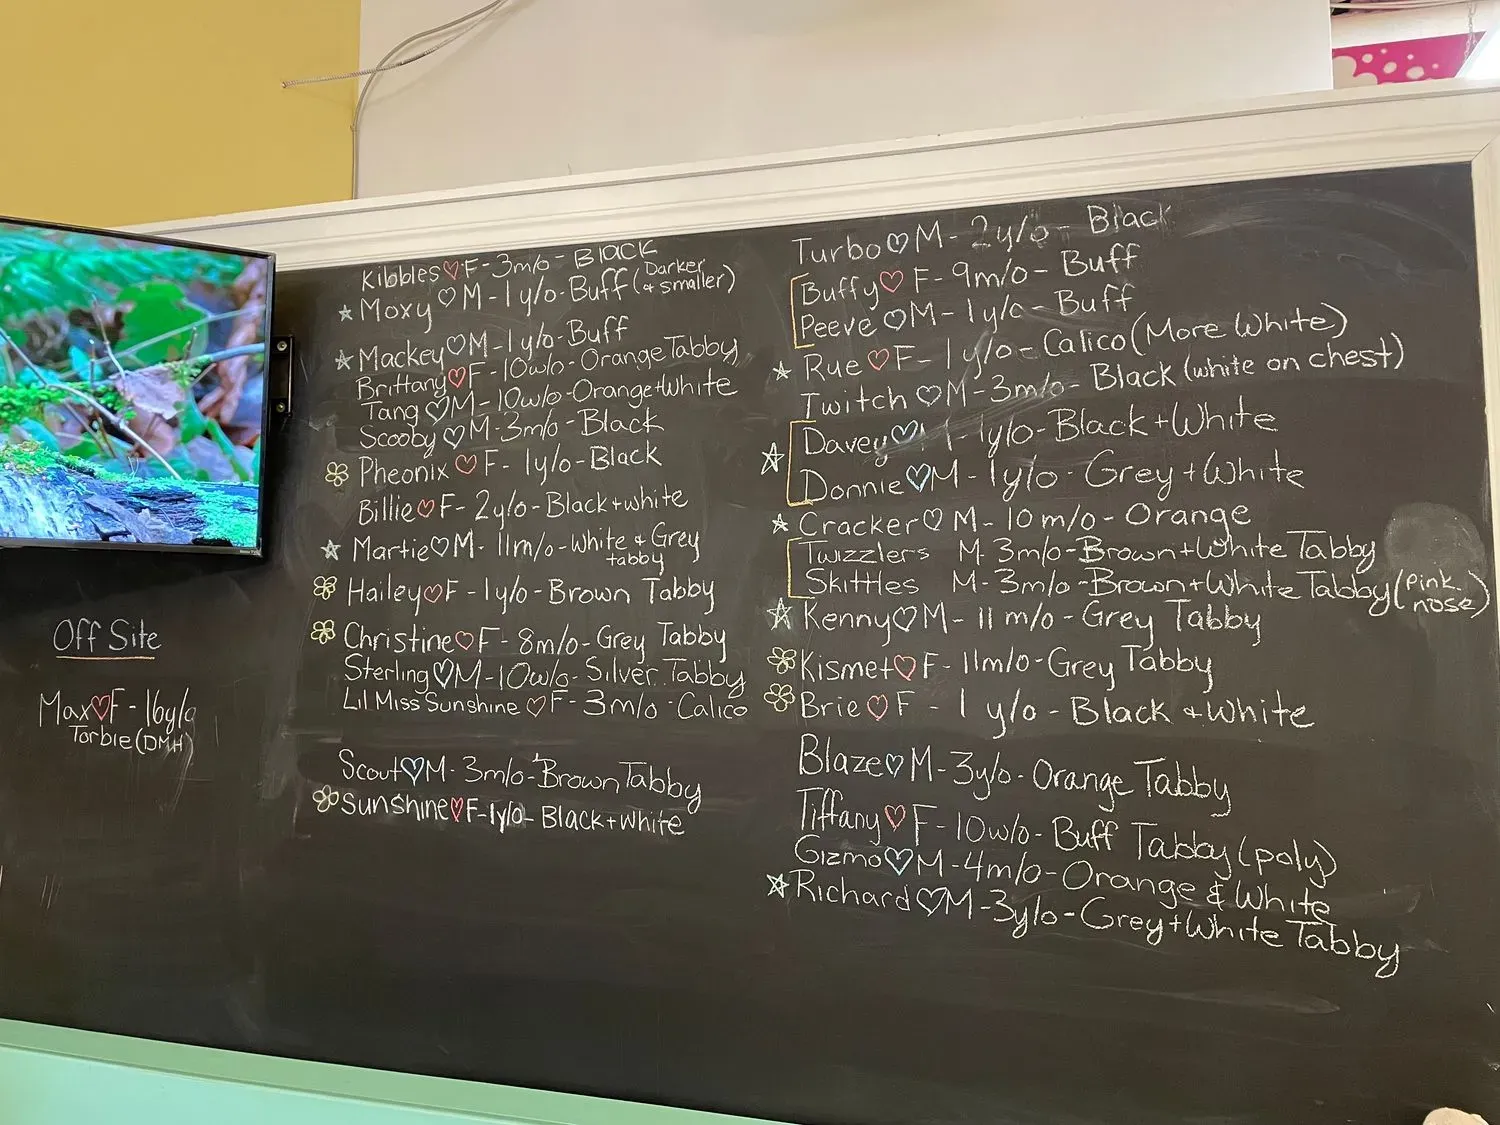 Kibbles♡F-3m/o-Black
☆Moxy♡M-1y/o-Buff (Darker & smaller)
☆Mackey♡M-1y/o-Buff
Brittany♡F-10w/o-Orange Tabby
Tang♡M-10w/o-Orange+White
Scooby♡M-3m/o-Black
Pheonix♡F-1y/o-Black
Billie♡F-2y/o-Black+white
☆Martie♡M-11m/o-White & Grey
tabby
Hailey♡F-1y/o-Brown Tabby
Christine♡F-8m/o-Grey Tabby
Sterling♡M-10w/o-Silver Tabby
Lil Miss Sunshine♡F-3m/o-Calico
Scout♡M-3m/o-Brown Tabby
Sunshine♡F-1y/o-Black+White
Turbo♡M-2y/o-Black
Buffy♡F-9m/o-Buff
Peeve♡M-1y/o-Buff
☆Rue♡F-1y/o-Calico (More White)
Twitch♡M-3m/o-Black (white on chest)
☆Davey♡ 1y/o-Black+White
Donnie♡M-1y/o-Grey+White
☆Cracker♡M-10m/o-Orange
Twizzlers M-3m/o-Brown+White Tabby
Skittles M-3m/o-Brown+White Tabby (pink nose)
☆Kenny♡M-11m/o-Grey Tabby
Kismet♡F-11m/o-Grey Tabby
Brie♡F-1y/o-Black+White
Blaze♡M-3y/o-Orange Tabby
Tiffany♡F-10w/o-Buff Tabby (poly)
Gizmo♡M-4m/o-Orange & White
☆Richard♡M-3y/o-Grey+White Tabby
Off Site
Max♡F-16y/o
Torbie (DMH)